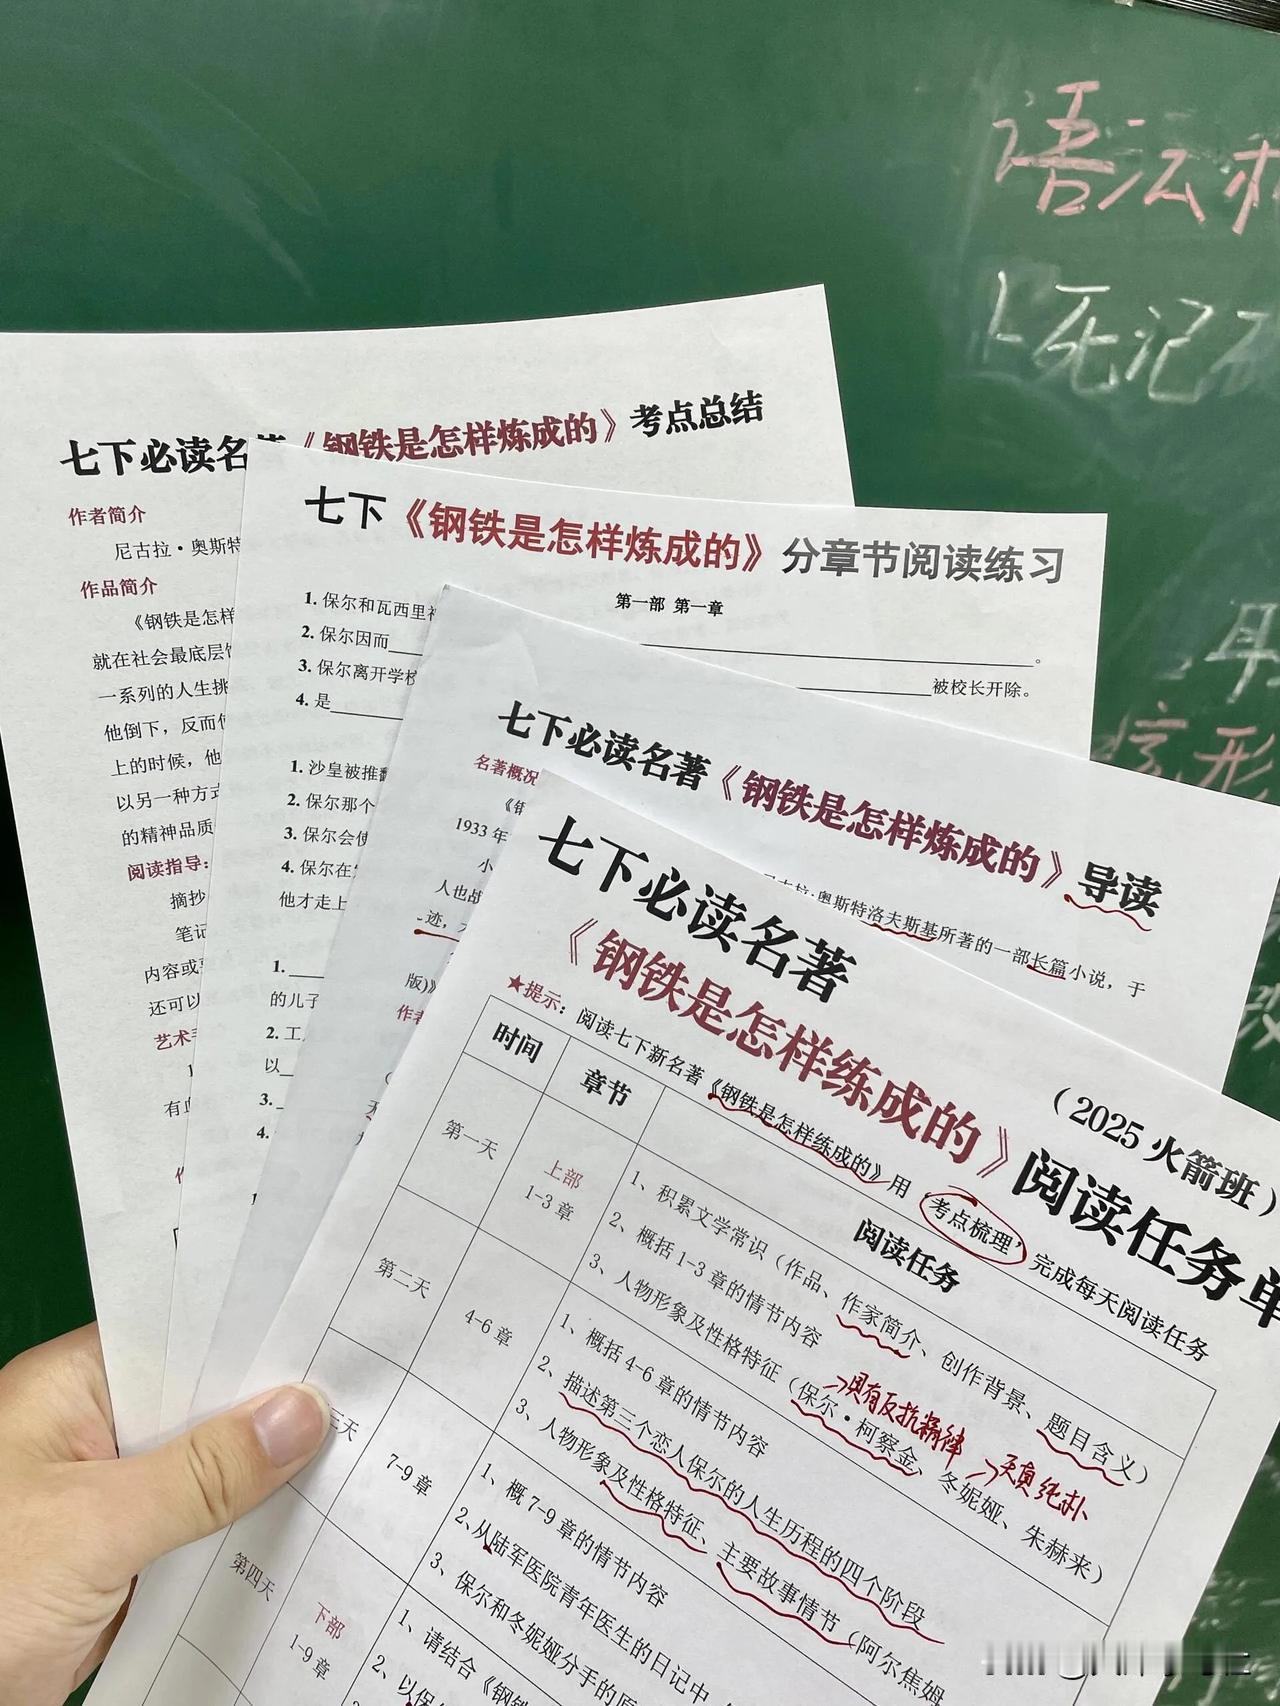 语法
死记
七下必读名著《钢铁是怎样炼成的》考点总结
作者简介
尼古拉·奥斯特
作品简介
《钢铁是怎样
就在社会最底层
一系列的人生挑
他倒下，反而
上的时候，他
以另一种方式
的精神品质
阅读指导：
摘抄
笔记
内容或
还可以
艺术
有
七下《钢铁是怎样炼成的》分章节阅读练习
第一部 第一章
1. 保尔和瓦西里
2. 保尔因而
。
3. 保尔离开学校
被校长开除。
4. 是
1. 沙皇被推翻
2. 保尔那个
3. 保尔会使
4. 保尔在
他才走上
1.
的儿子
2. 工
以
3.
4.
七下必读名著《钢铁是怎样炼成的》导读
名著概况
尼古拉·奥斯特洛夫斯基所著的一部长篇小说，于
1933 年
小
人也战
迹，
版)》
作者
七下必读名著
（2025 火箭班）
《钢铁是怎样练成的》阅读任务单
★提示：阅读七下新名著《钢铁是怎样练成的》用‘考点梳理’完成每天阅读任务
时间
章节
阅读任务
第一天
上部
1-3 章
1、积累文学常识（作品、作家简介、创作背景、题目含义）
2、概括 1-3 章的情节内容
→具有反抗精神
→天真纯朴
3、人物形象及性格特征（保尔·柯察金、冬妮娅、朱赫来）
第二天
4-6 章
1、概括 4-6 章的情节内容
2、描述第三个恋人保尔的人生历程的四个阶段
3、人物形象及性格特征、主要故事情节（阿尔焦姆
三天
7-9 章
1、概 7-9 章的情节内容
2、从陆军医院青年医生的日记中
3、保尔和冬妮娅分手的原
第四天
下部
1-9 章
1、请结合《钢铁
2、以保